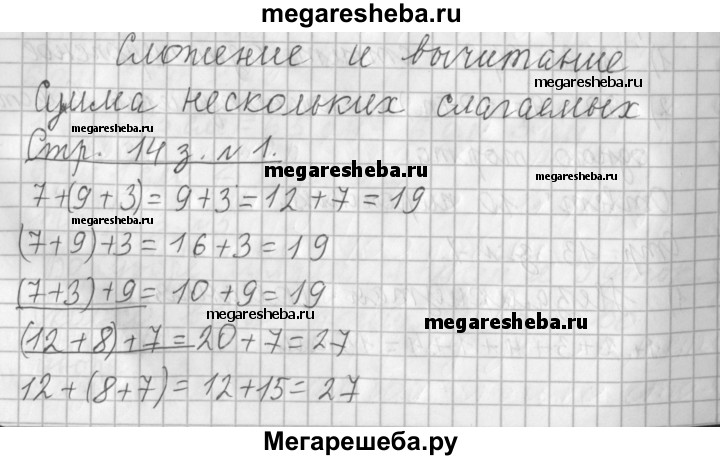 megaresheba.ru
Сложение и вычитание
megaresheba.ru
Сумма нескольких слагаемых
megaresheba.ru
Стр. 14 з. №1.
megaresheba.ru
megaresheba.ru
7+(9+3)=9+3=12+7=19
megaresheba.ru
(7+9)+3=16+3=19
(7+3)+9=10+9=19
megaresheba.ru
megaresheba.ru
(12+8)+7=20+7=27
12+(8+7)=12+15=27
Мегарешеба.ру